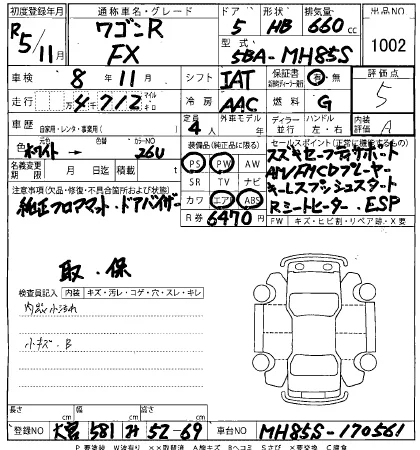 初度登録年月 通称車名・グレード ドア 形状 排気量 出品NO
R5/11月 ワゴンR FX 5 HB 660cc 1002
型式 5BA-MH85S
車検 8年11月 シフト IAT 保証書 有・無 評価点 5
走行 4712 マイル キロ 冷房 AAC 燃料 G
車歴 自家用・レンタ・事業用( ) 定員 4人 外車モデル 年 ディーラー 並行 ハンドル 左・右 内装評価 A
色 ホワイト 色替 カラーNO 26U
装備品(純正品に限る) PS PW AW
SR TV ナビ
カワ エアB ABS
R券 6470円
セールスポイント(正常に稼働するもの)
スズキセーフティサポート
AM/FM/CDプレーヤー
キーレスプッシュスタート
Rシートヒーター.ESP
FW キズ・ヒビ割・リペア跡・X要
名義変更期限 月 日迄 積載 t
注意事項(欠品・修復・不具合箇所および状態)
純正フロアマット・ドアバイザー
取.保
検査員記入 内装 キズ・汚レ・コゲ・穴・スレ・キレ
内装小汚れ
小キズ.B
長さ cm 幅 cm 高さ cm
登録NO 大宮 581 み 52-69 車台NO MH85S-170561
P要塗装 W波有り ××取替済 A線キズ Bヘコミ Sさび ×要交換 C腐食